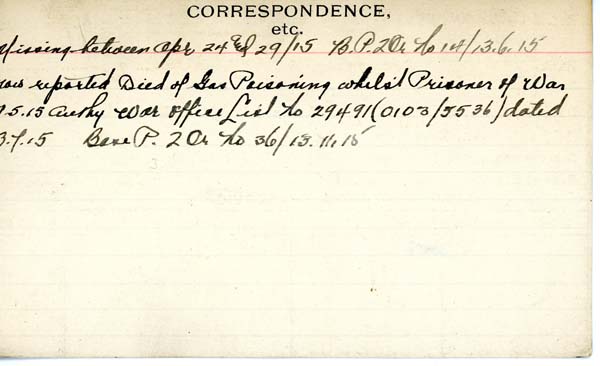 CORRESPONDENCE,
etc.
Missing between Apr 24 & 29/15 B.P.2 Or No 14/13.6.15
now reported Died of Gas Poisoning whilst Prisoner of War
.5.15 Authy War Office List No 29491(0103/5536) dated
3.7.15 Base P. 2 Or No 36/13.11.15